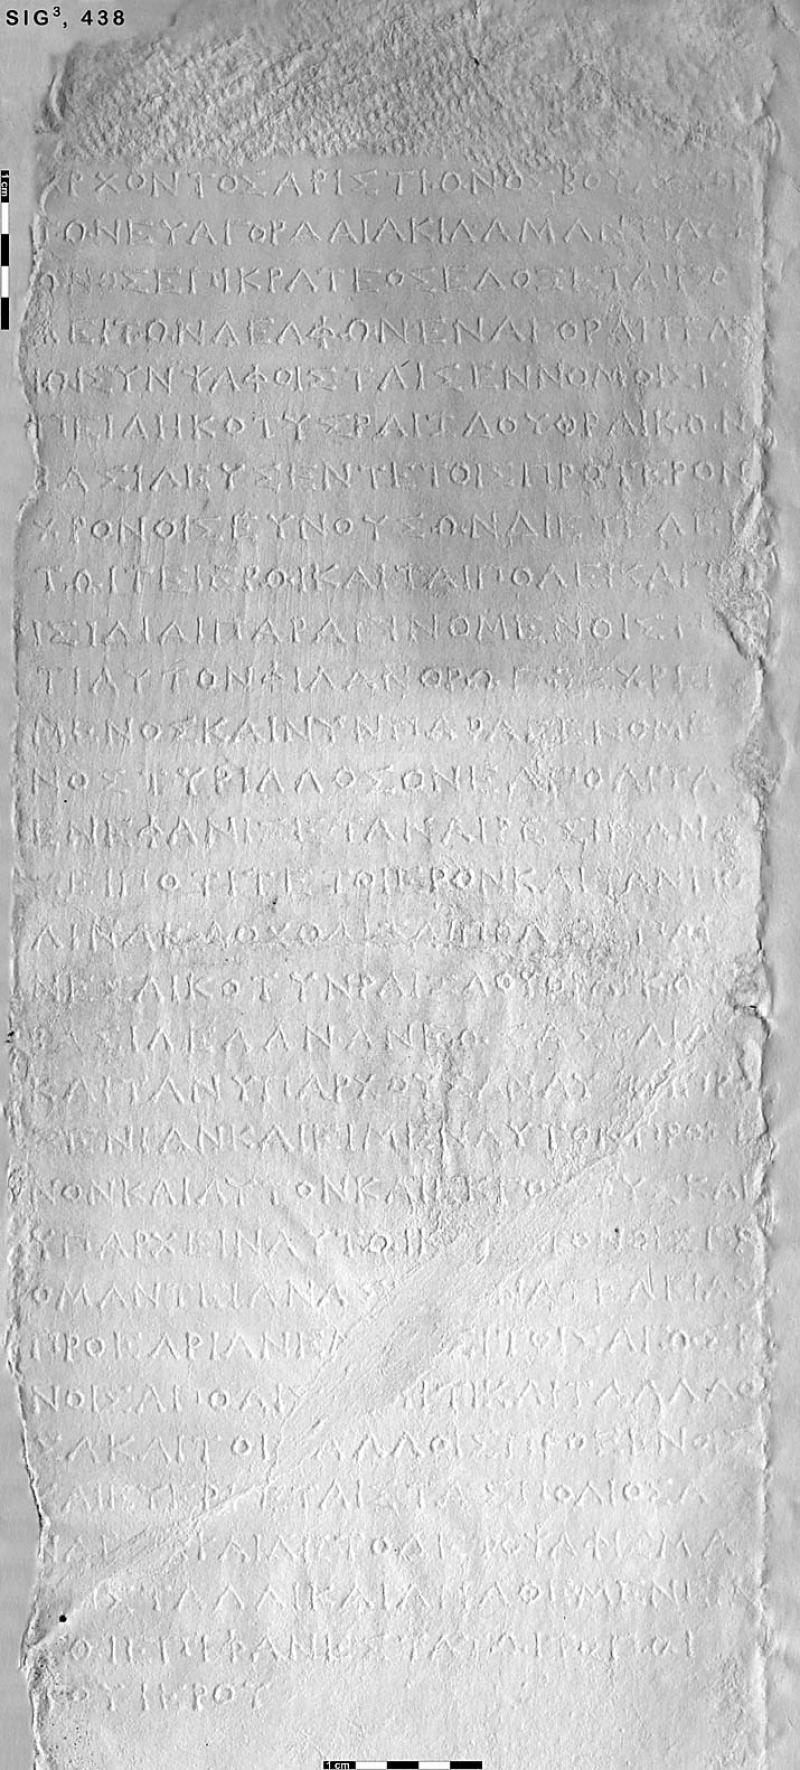 SIG³, 438
ΡΧΟΝΤΟΣΑΡΙΣΤΙΩΝΟΣΒΟΥ
ΤΩΝΕΥΑΓΟΡΑΑΙΑΚΙΔΑΜΑΝΤΙΑ
ΩΝΟΣΕΠΙΚΡΑΤΕΟΣΕΔΟΞΕΤΑΙΠΟ
ΛΕΙΤΩΝΔΕΛΦΩΝΕΝΑΓΟΡΑΙΤΕΛ
ΙΩΙΣΥΝΨΑΦΟΙΣΤΑΙΣΕΝΝΟΜΟΙΣΕ
ΠΕΙΔΗΚΟΤΥΣΡΑΙΖΔΟΥΘΡΑΙΚΩΝ
ΒΑΣΙΛΕΥΣΕΝΤΕΤΟΙΣΠΡΟΤΕΡΟΝ
ΧΡΟΝΟΙΣΕΥΝΟΥΣΩΝΔΙΕΤΕΛΕΙ
ΤΩΙΤΕΙΕΡΩΙΚΑΙΤΑΙΠΟΛΕΙΚΑΙΤ
ΙΣΙΔΙΑΙΠΑΡΑΓΙΝΟΜΕΝΟΙΣΠ
ΤΙΑΥΤΟΝΦΙΛΑΝΘΡΩΠΩΣΧΡΕΙ
ΜΕΝΟΣΚΑΙΝΥΝΠΑΡΑΓΕΝΟΜΕ
ΝΟΣΤΥΡΙΑΛΛΟΣΩΝΕΑΠΟΛΙΤΑ
ΕΝΕΦΑΝΙΣΕΤΑΝΑΙΡΕΣΙΝΑΝ
ΧΕΙΠΟΤΙΤΕΤΟΙΕΡΟΝΚΑΙΤΑΝΠΟ
ΛΙΝΔΕΔΟΧΘΑΙΤΑΙΠΟΛΕΙ
ΝΕΣΑΙΚΟΤΥΝΡΑΙΖΔΟΥΘΡΑΙΚΩΝ
ΒΑΣΙΛΕΑΑΝΑΝΕΩΣΑΣΘΑΙΔ
ΚΑΙΤΑΝΥΠΑΡΧΟΥΣΑΝΑΥ
ΞΕΝΙΑΝΚΑΙΕΙΜΕΝΑΥΤΟΝΠΡΟΞΕ
ΝΟΝΚΑΙΑΥΤΟΝΚΑΙΕΚΓΟΝΟΥΣΚΑΙ
ΥΠΑΡΧΕΙΝΑΥΤΩΙΚ ΓΟΝΟΙΣΠΡ
ΟΜΑΝΤΕΙΑΝΑ ΝΑΤΕΛΕΙΑΝ
ΠΡΟΕΔΡΙΑΝΕΝ ΣΙΤΟΙΣΑΓΩΣΙ
ΝΟΙΣΑΠΟΛΙΣ ΗΤΙΚΑΙΤΑΛΛΑΟ
ΣΑΚΑΙΤΟΙΣΑΛΛΟΙΣΠΡΟΞΕΝΟΙΣ
ΚΑΙΕΥΕΡΓΕΤΑΙΣΤΑΣΠΟΛΙΟΣΑ
ΝΑΓΡΑΨΑΙΔΕΤΟΔΕΤΟΨΑΦΙΣΜΑ
ΣΤΑΛΑΙΚΑΙΑΝΑΘΕΜΕΝΕΝ
ΤΩΙΕΠΙΦΑΝΕΣΤΑΤΩΙΤΟΠΩΙ
ΤΟΥΙΕΡΟΥ
1 cm
1 cm